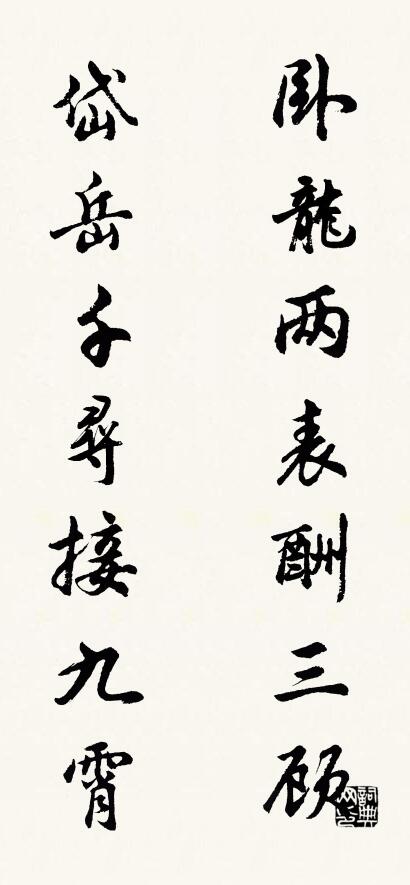 卧龍两表酬三顾
岱岳千尋接九霄
詞典网